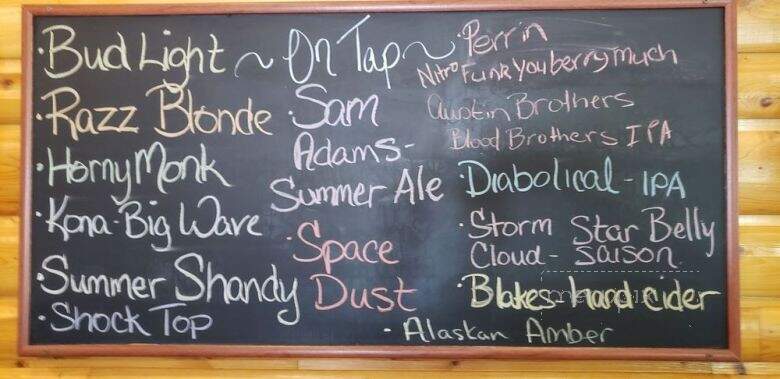 ~ On Tap ~
·Bud Light
·Razz Blonde
·Horny Monk
·Kona-Big Wave
·Summer Shandy
·Shock Top
·Sam
Adams-
Summer Ale
·Space
Dust
·Perrin
Nitro Funk You berry much
Austin Brothers
Blood Brothers IPA
·Diabolical - IPA
·Storm Star Belly
Cloud - Saison
·Blakes hard cider
·Alaskan Amber